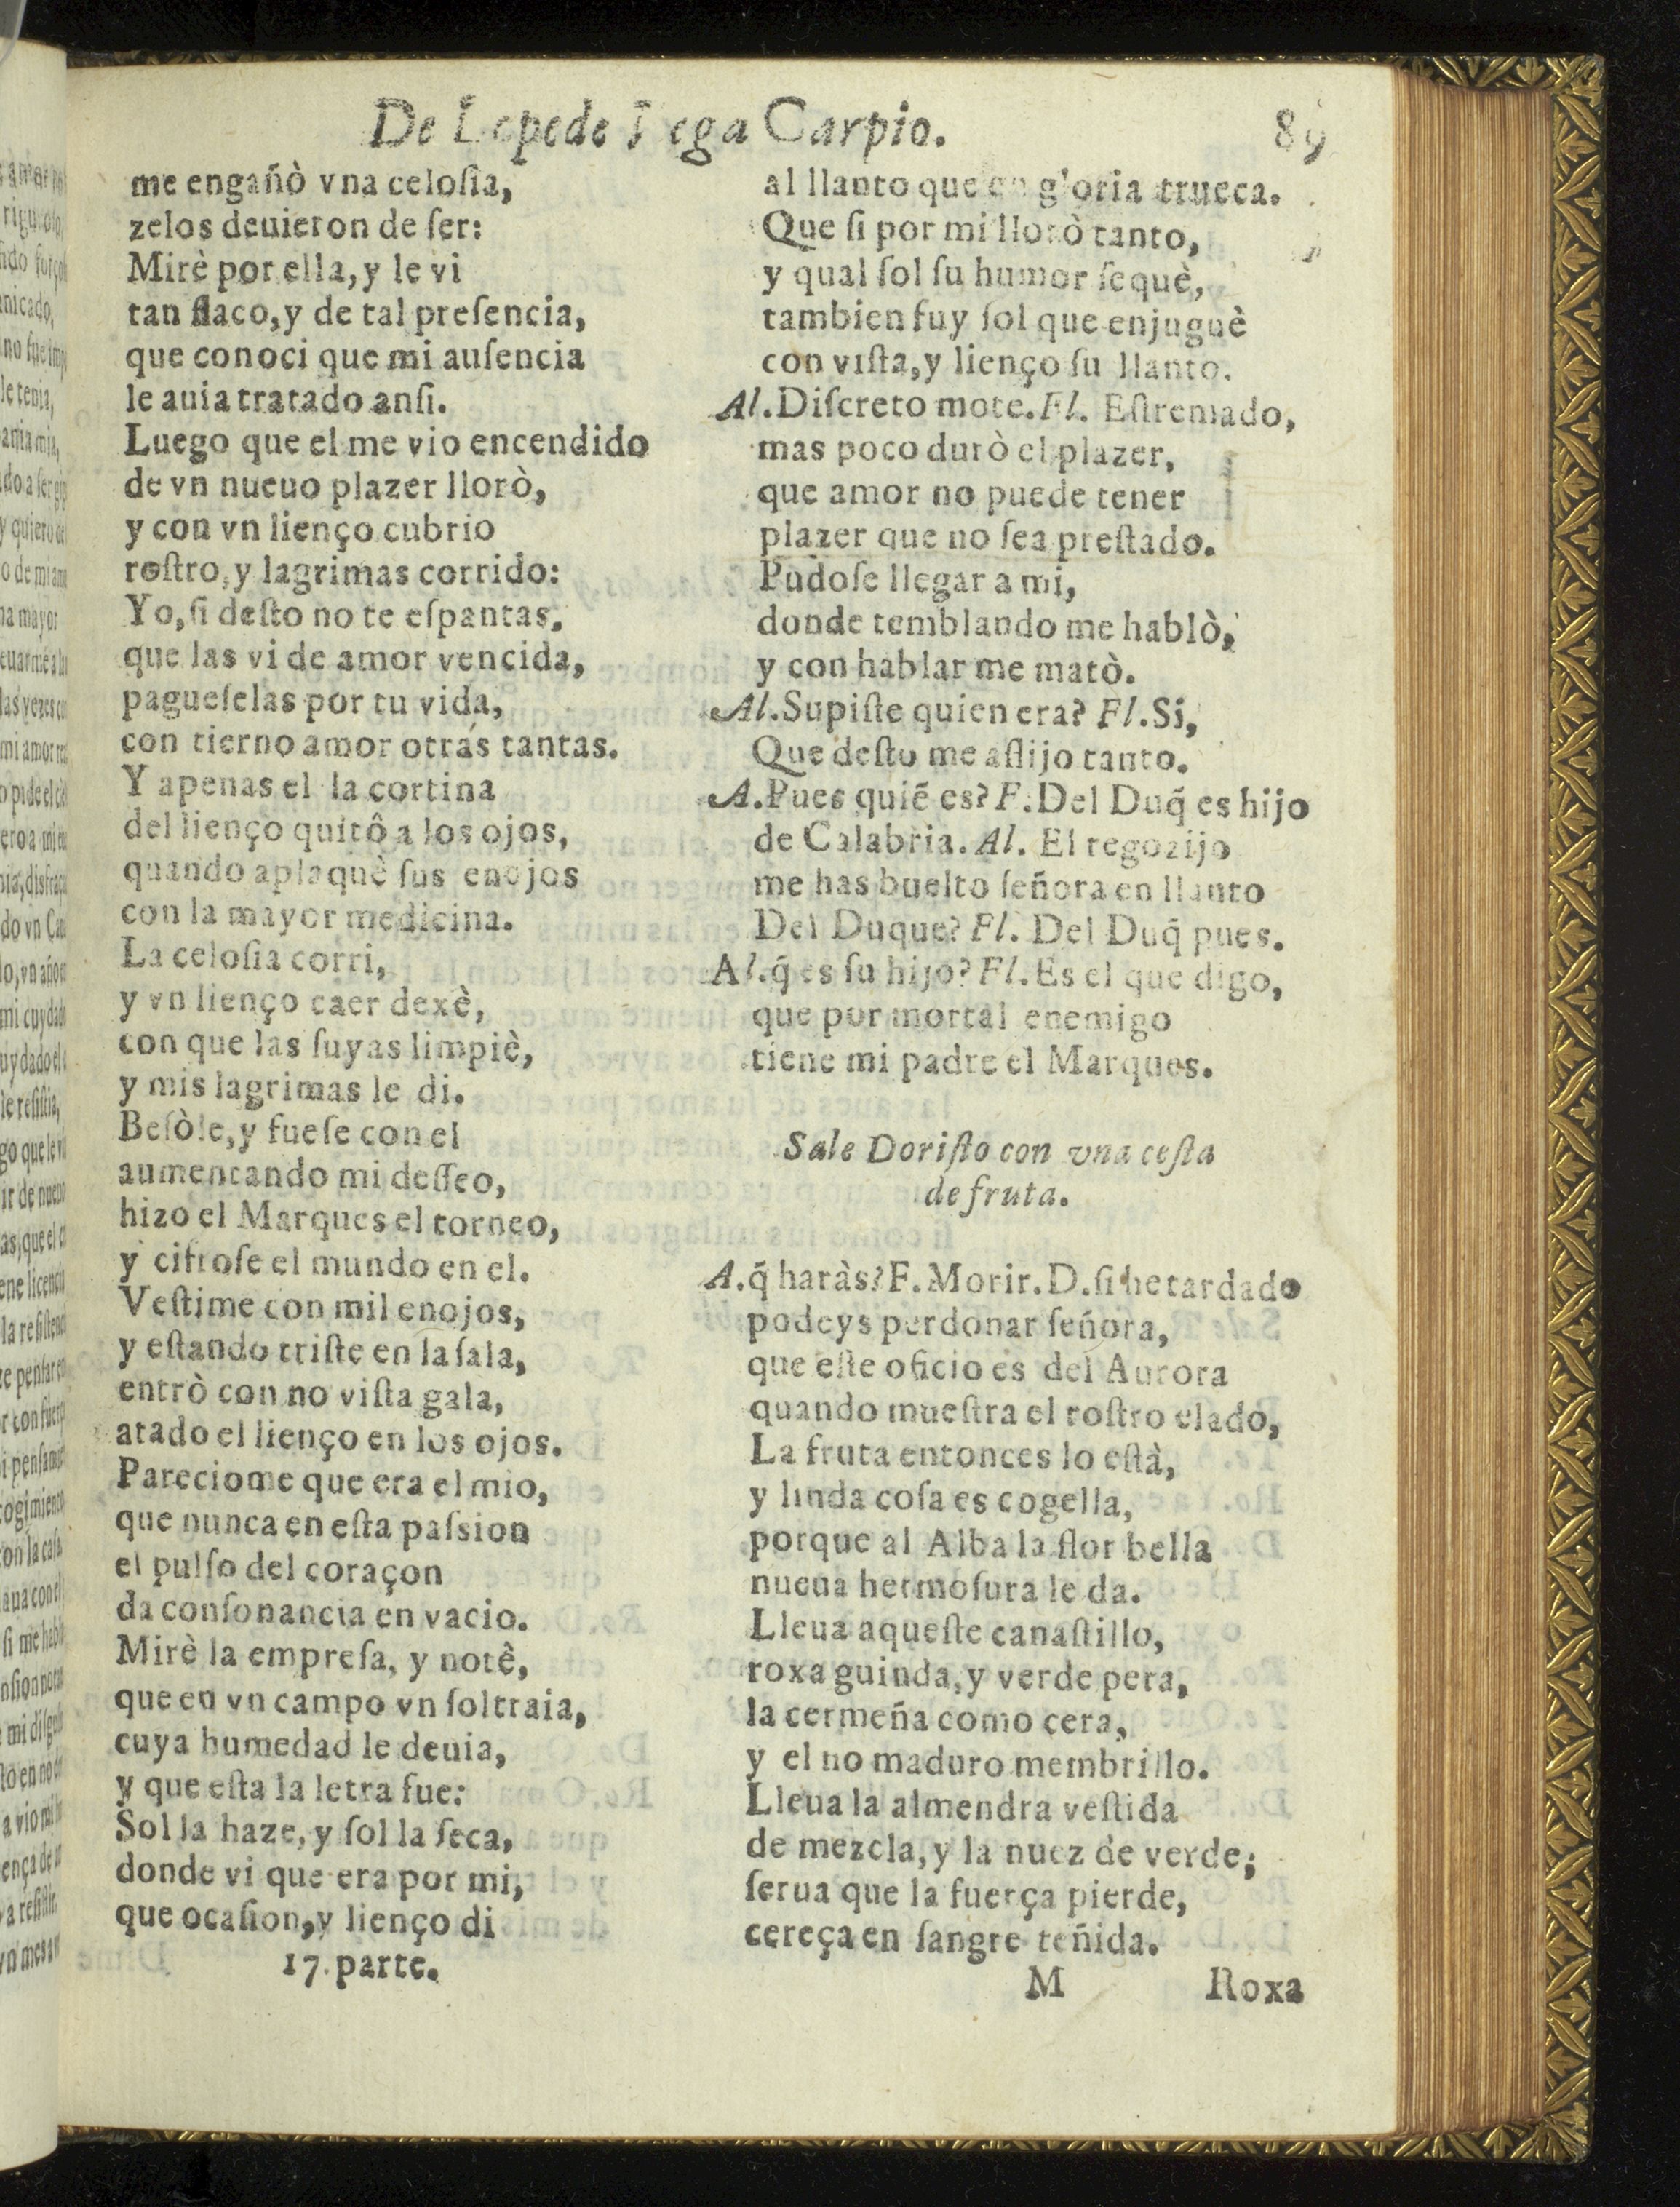 De Lope de Vega Carpio. 89
me engañò vna celoſia,
zelos deuieron de ſer:
Mirè por ella, y le vi
tan flaco, y de tal preſencia,
que conoci que mi auſencia
le auia tratado anſi.
Luego que el me vio encendido
de vn nueuo plazer llorò,
y con vn lienço cubrio
roſtro, y lagrimas corrido:
Yo, ſi deſto no te eſpantas.
que las vi de amor vencida,
pagueſelas por tu vida,
con tierno amor otras tantas.
Y apenas el la cortina
del lienço quitô a los ojos,
quando aplaquè ſus enojos
con la mayor medicina.
La celoſia corri,
y vn lienço caer dexè,
con que las ſuyas limpiè,
y mis lagrimas le di.
Beſòle, y fueſe con el
aumentando mi deſſeo,
hizo el Marques el torneo,
y cifroſe el mundo en el.
Veſtime con mil enojos,
y eſtando triſte en la ſala,
entrò con no viſta gala,
atado el lienço en los ojos.
Pareciome que era el mio,
que nunca en eſta paſsion
el pulſo del coraçon
da conſonancia en vacio.
Mirè la empreſa, y notè,
que en vn campo vn ſol traia,
cuya humedad le deuia,
y que eſta la letra fue:
Sol la haze, y ſol la ſeca,
donde vi que era por mi,
que ocaſion, y lienço di
17. parte.
al llanto que en gloria trueca.
Que ſi por mi llorò tanto,
y qual ſol ſu humor ſequè,
tambien fuy ſol que enjuguè
con viſta, y lienço ſu llanto.
Al. Diſcreto mote. Fl. Eſtremado,
mas poco durò el plazer,
que amor no puede tener
plazer que no ſea preſtado.
Pudoſe llegar a mi,
donde temblando me hablò,
y con hablar me matò.
Al. Supiſte quien era? Fl. Si,
Que deſto me aflijo tanto.
A. Pues quiẽ es? F. Del Duq̃ es hijo
de Calabria. Al. El regozijo
me has buelto ſeñora en llanto
Del Duque? Fl. Del Duq̃ pues.
Al. q̃ es ſu hijo? Fl. Es el que digo,
que por mortal enemigo
tiene mi padre el Marques.
Sale Doriſto con vna ceſta
de fruta.
A. q̃ haràs? F. Morir. D. ſi he tardado
podeys perdonar ſeñora,
que eſte oficio es del Aurora
quando mueſtra el roſtro elado,
La fruta entonces lo eſtà,
y linda coſa es cogella,
porque al Alba la flor bella
nueua hermoſura le da.
Lleua aqueſte canaſtillo,
roxa guinda, y verde pera,
la cermeña como cera,
y el no maduro membrillo.
Lleua la almendra veſtida
de mezcla, y la nuez de verde;
ſerua que la fuerça pierde,
cereça en ſangre teñida.
M Roxa